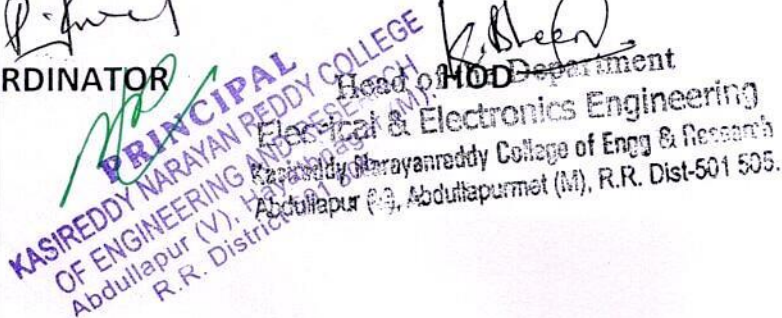 RDINATOR
HOD
PRINCIPAL
KASIREDDY NARAYAN REDDY COLLEGE
OF ENGINEERING AND RESEARCH
Abdullapur (V), (M),
R.R. District
Head of Department
Electrical & Electronics Engineering
Narayanreddy College of Engg & Research
Abdullapur Abdullapurmet (M), R.R. Dist-501 505.